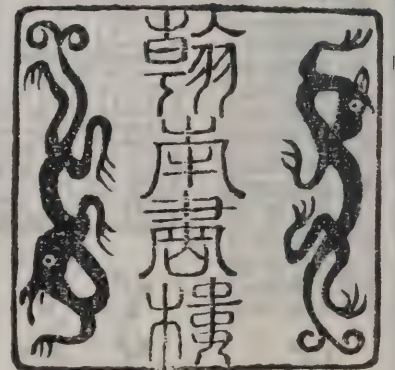 翰南書樓